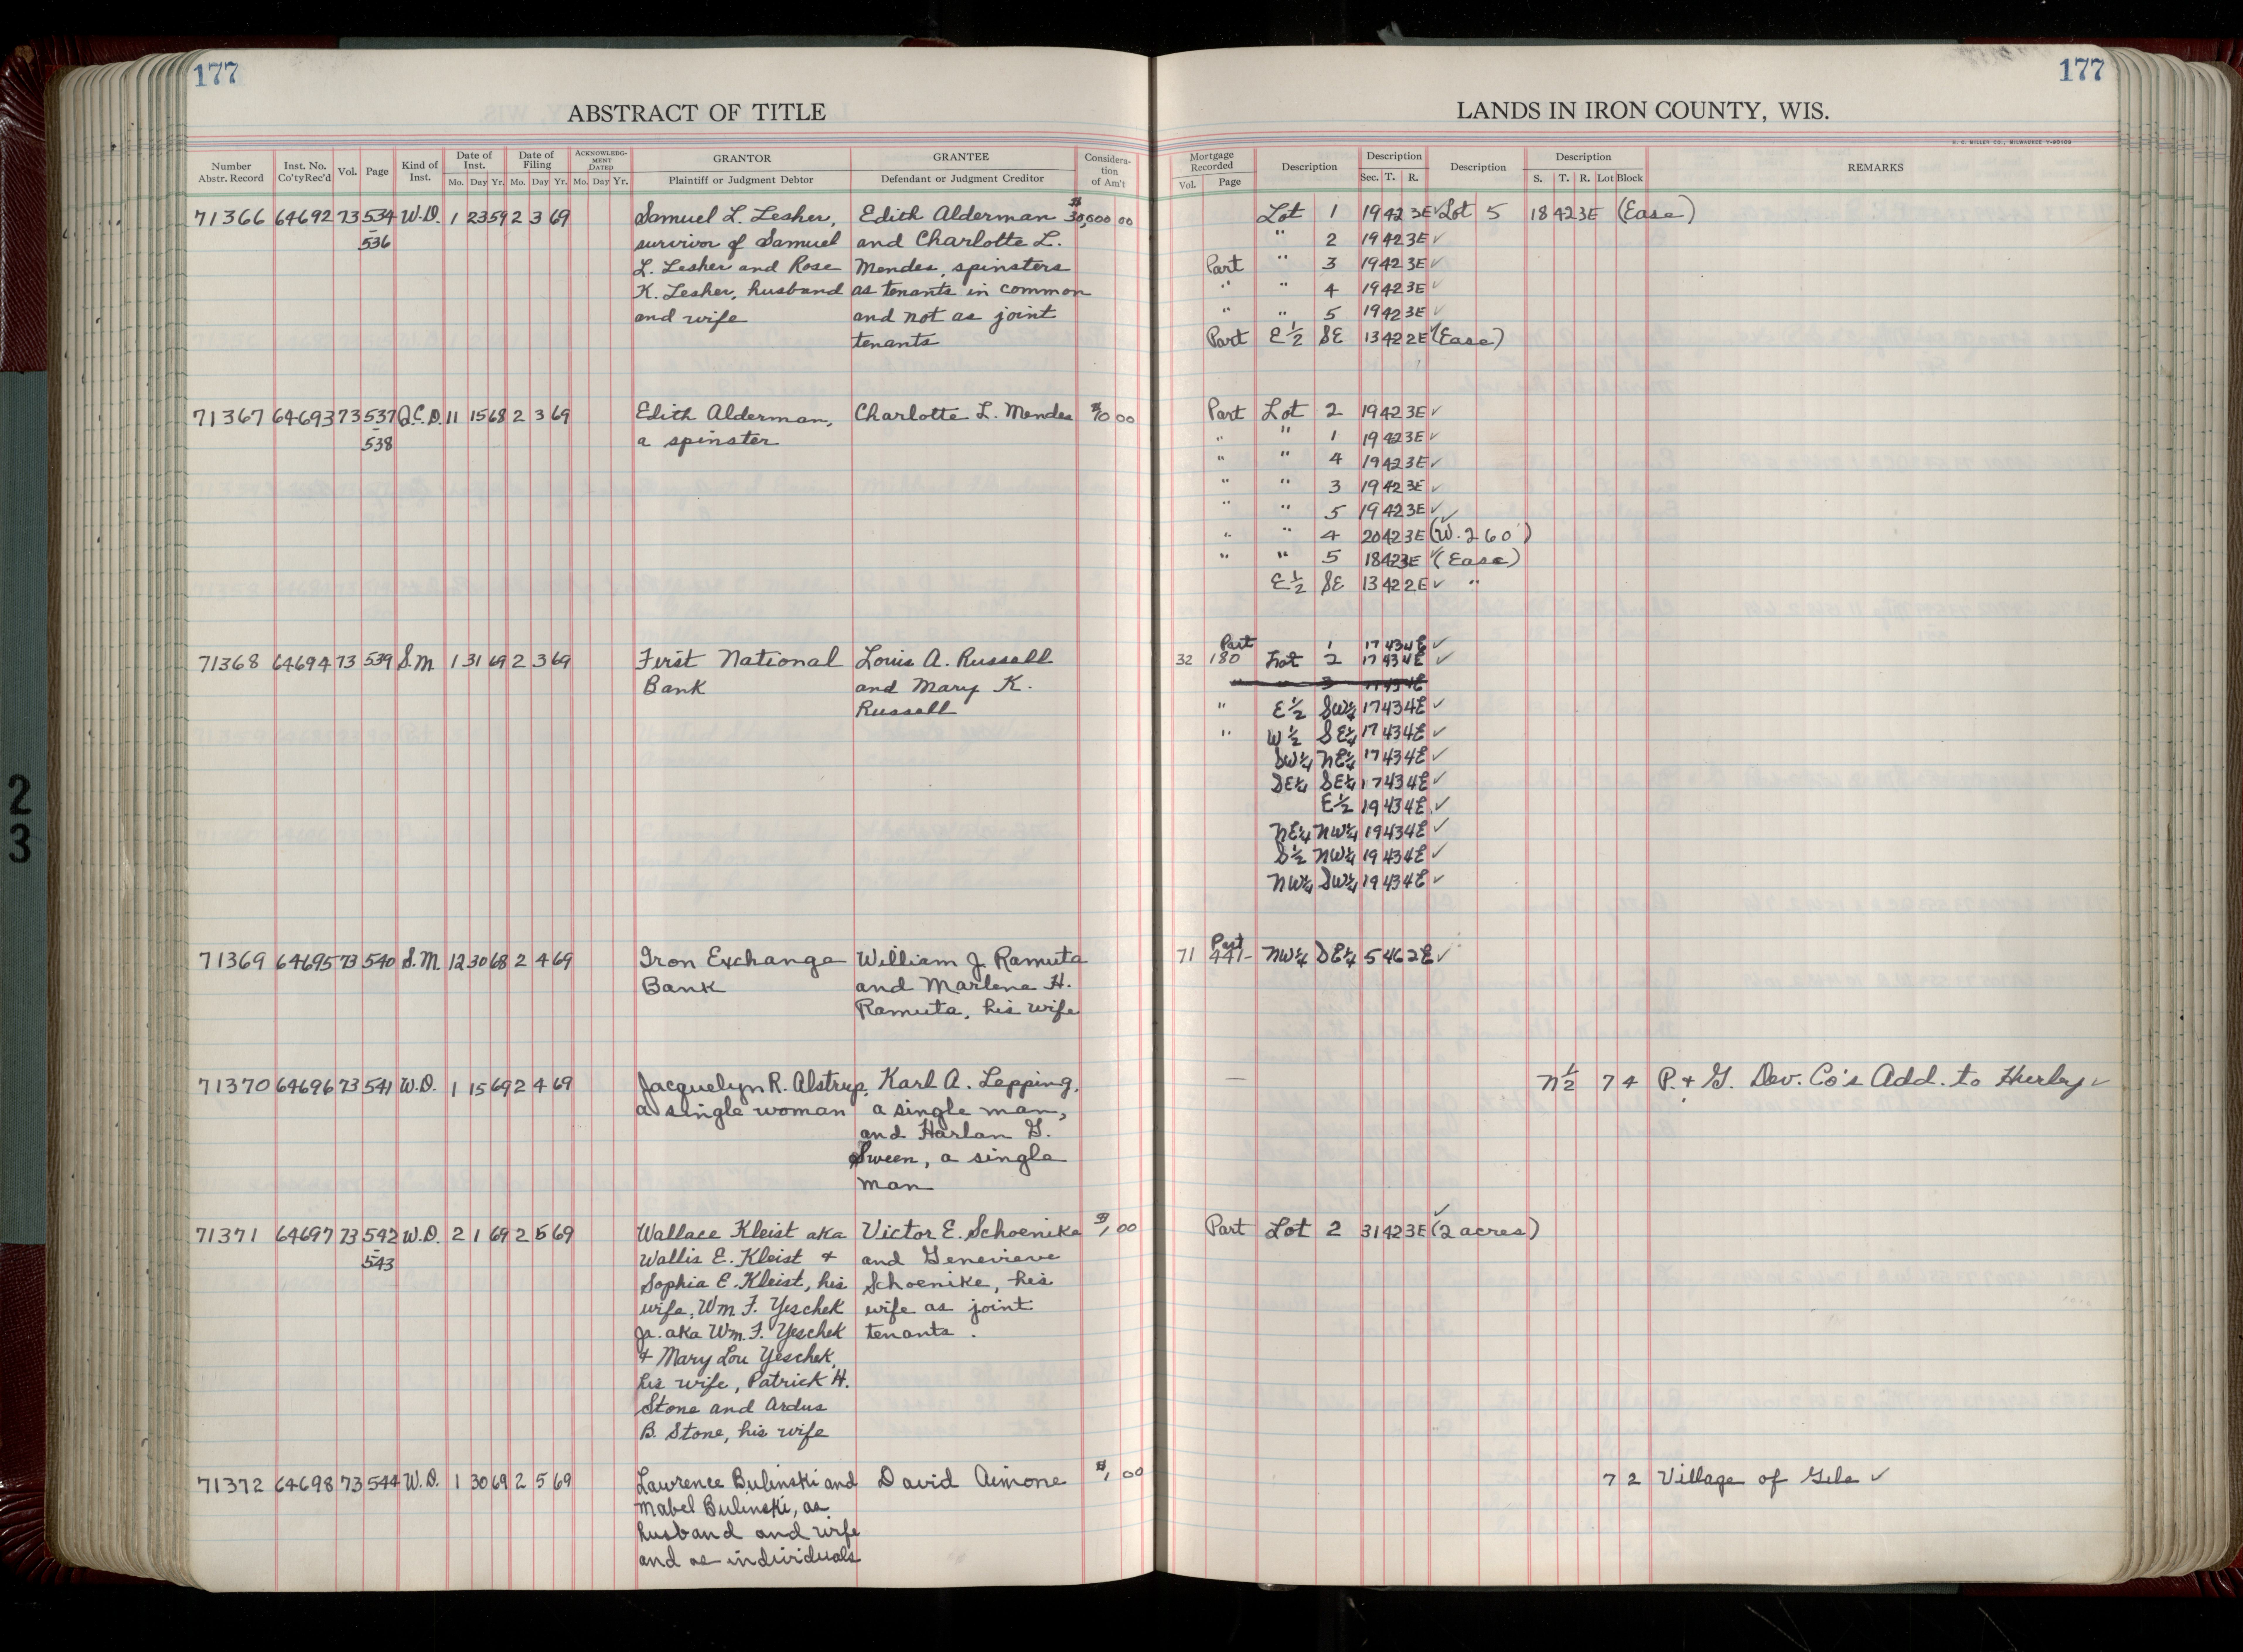 177
177
ABSTRACT OF TITLE
LANDS IN IRON COUNTY, WIS.
H. C. MILLER CO., MILWAUKEE
Number Abstr. Record Inst. No. Co'ty Rec'd Vol. Page Kind of Inst. Date of Inst. Date of Filing ACKNOWLEDGMENT DATED GRANTOR GRANTEE Consideration of Am't
Mo. Day Yr. Mo. Day Yr. Mo. Day Yr. Plaintiff or Judgment Debtor Defendant or Judgment Creditor
Mortgage Recorded Description Description Description Description REMARKS
Vol. Page Sec. T. R. S. T. R. Lot Block
71366 64692 73 534 W.D. 1 23 59 2 3 69 Samuel L. Lesher, Edith Alderman $30,000 00
- 536 survivor of Samuel and Charlotte L.
L. Lesher and Rose Mendes, spinsters
K. Lesher, husband as tenants in common
and wife and not as joint
tenants
Lot 1 19 42 3E ✓ Lot 5 18 42 3E (Ease)
" 2 19 42 3E ✓
Part " 3 19 42 3E ✓
" " 4 19 42 3E ✓
" " 5 19 42 3E ✓
Part E½ SE 13 42 2E ✓ (Ease)
71367 64693 73 537 Q.C.D. 11 15 68 2 3 69 Edith Alderman, Charlotte L. Mendes $10 00
- 538 a spinster
Part Lot 2 19 42 3E ✓
" " 1 19 42 3E ✓
" " 4 19 42 3E ✓
" " 3 19 42 3E ✓
" " 5 19 42 3E ✓
" " 4 20 42 3E ✓ (W. 260')
" " 5 18 42 3E ✓ (Ease)
E½ SE 13 42 2E ✓ "
71368 64694 73 539 S.M 1 31 69 2 3 69 First National Louis A. Russell
Bank and Mary K.
Russell
Part 1 17 43 4E ✓
32 180 Lot 2 17 43 4E ✓
" " 3 17 43 4E
" E½ SW¼ 17 43 4E ✓
" W½ SE¼ 17 43 4E ✓
SW¼ NE¼ 17 43 4E ✓
SE¼ SE¼ 17 43 4E ✓
E½ 19 43 4E ✓
NE¼ NW¼ 19 43 4E ✓
S½ NW¼ 19 43 4E ✓
NW¼ SW¼ 19 43 4E ✓
71369 64695 73 540 S.M. 12 30 68 2 4 69 Iron Exchange William J. Ramuta
Bank and Marlene H.
Ramuta, his wife
Part
71 441 NW¼ SE¼ 5 46 2E ✓
71370 64696 73 541 W.D. 1 15 69 2 4 69 Jacquelyn R. Alstrup, Karl A. Lepping,
a single woman a single man,
and Harlan G.
Sween, a single
man
— N½ 7 4 P. + G. Dev. Co's Add. to Hurley ✓
71371 64697 73 542 W.D. 2 1 69 2 5 69 Wallace Kleist aka Victor E. Schoenike $1 00
- 543 Wallis E. Kleist + and Genevieve
Sophia E. Kleist, his Schoenike, his
wife, Wm. F. Yeschek wife as joint
Jr. aka Wm. F. Yeschek tenants.
+ Mary Lou Yeschek,
his wife, Patrick H.
Stone and Ardus
B. Stone, his wife
Part Lot 2 31 42 3E ✓ (2 acres)
71372 64698 73 544 W.D. 1 30 69 2 5 69 Lawrence Bulinski and David Aimone $1 00
Mabel Bulinski, as
husband and wife
and as individuals
7 2 Village of Gile ✓
2
3